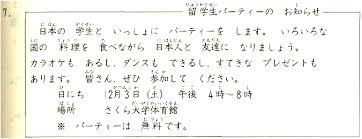 7. 留学生パーティーの お知らせ
日本の 学生と いっしょに パーティーを します。いろいろな
国の 料理を 食べながら 日本人と 友達に なりましょう。
カラオケも あるし、ダンスも できるし、すてきな プレゼントも
あります。皆さん、ぜひ 参加して ください。
日にち 12月3日(土) 午後 4時~8時
場所 さくら大学体育館
※ パーティーは 無料です。